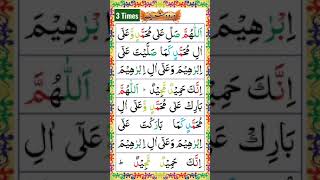 3 Times
اَللّٰهُمَّ صَلِّ عَلٰی مُحَمَّدٍ وَّعَلٰٓی
اٰلِ مُحَمَّدٍ كَمَا صَلَّيْتَ عَلٰٓی
اِبْرٰهِيْمَ وَعَلٰٓی اٰلِ اِبْرٰهِيْمَ
اِنَّكَ حَمِيْدٌ مَّجِيْدٌ ؕ اَللّٰهُمَّ
بَارِكْ عَلٰی مُحَمَّدٍ وَّعَلٰٓی اٰلِ
مُحَمَّدٍ كَمَا بَارَكْتَ عَلٰٓی
اِبْرٰهِيْمَ وَعَلٰٓی اٰلِ اِبْرٰهِيْمَ
اِنَّكَ حَمِيْدٌ مَّجِيْدٌ ؕ